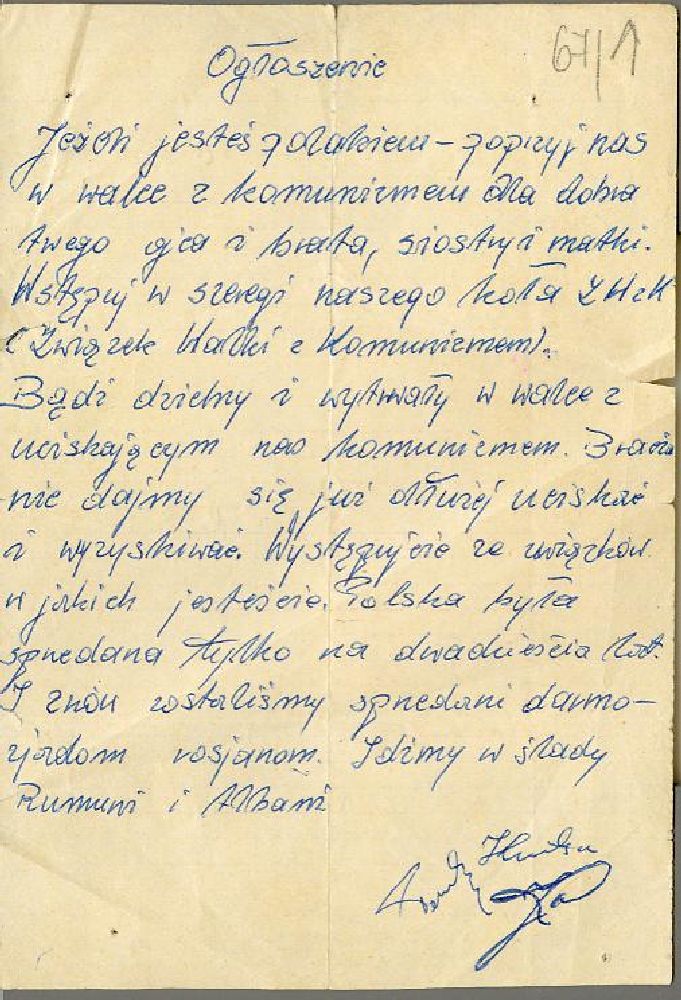 Ogłoszenie
67/1
Jeżeli jesteś polakiem – popryj nas
w walce z komunizmem dla dobra
twego ojca i brata, siostry i matki.
Wstępuj w szeregi naszego koła Z W z K
(Związek Walki z Komunizmem).
Bądź dzielny i wytrwały w walce z
uciskającym nas komunizmem. Bracia
nie dajmy się już dłużej uciskać
i wyzyskiwać. Występujcie ze związków
w jakich jesteście. Polska była
spnedana tylko na dwadzieścia lat.
I znów zostaliśmy spnedani darmo-
zjadom rosjanom. Idźmy w ślady
Rumuni i Albani